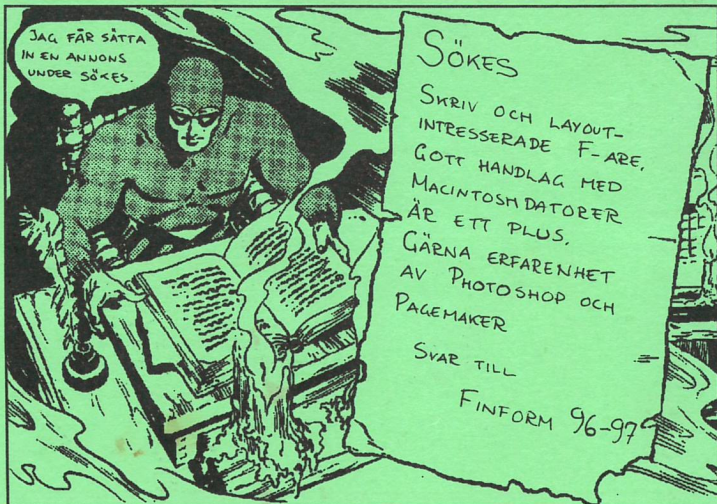 JAG FÅR SÄTTA
IN EN ANNONS
UNDER SÖKES.
SÖKES
SKRIV OCH LAYOUT-
INTRESSERADE F-ARE.
GOTT HANDLAG MED
MACINTOSHDATORER
ÄR ETT PLUS.
GÄRNA ERFARENHET
AV PHOTOSHOP OCH
PAGEMAKER
SVAR TILL
FINFORM 96-97